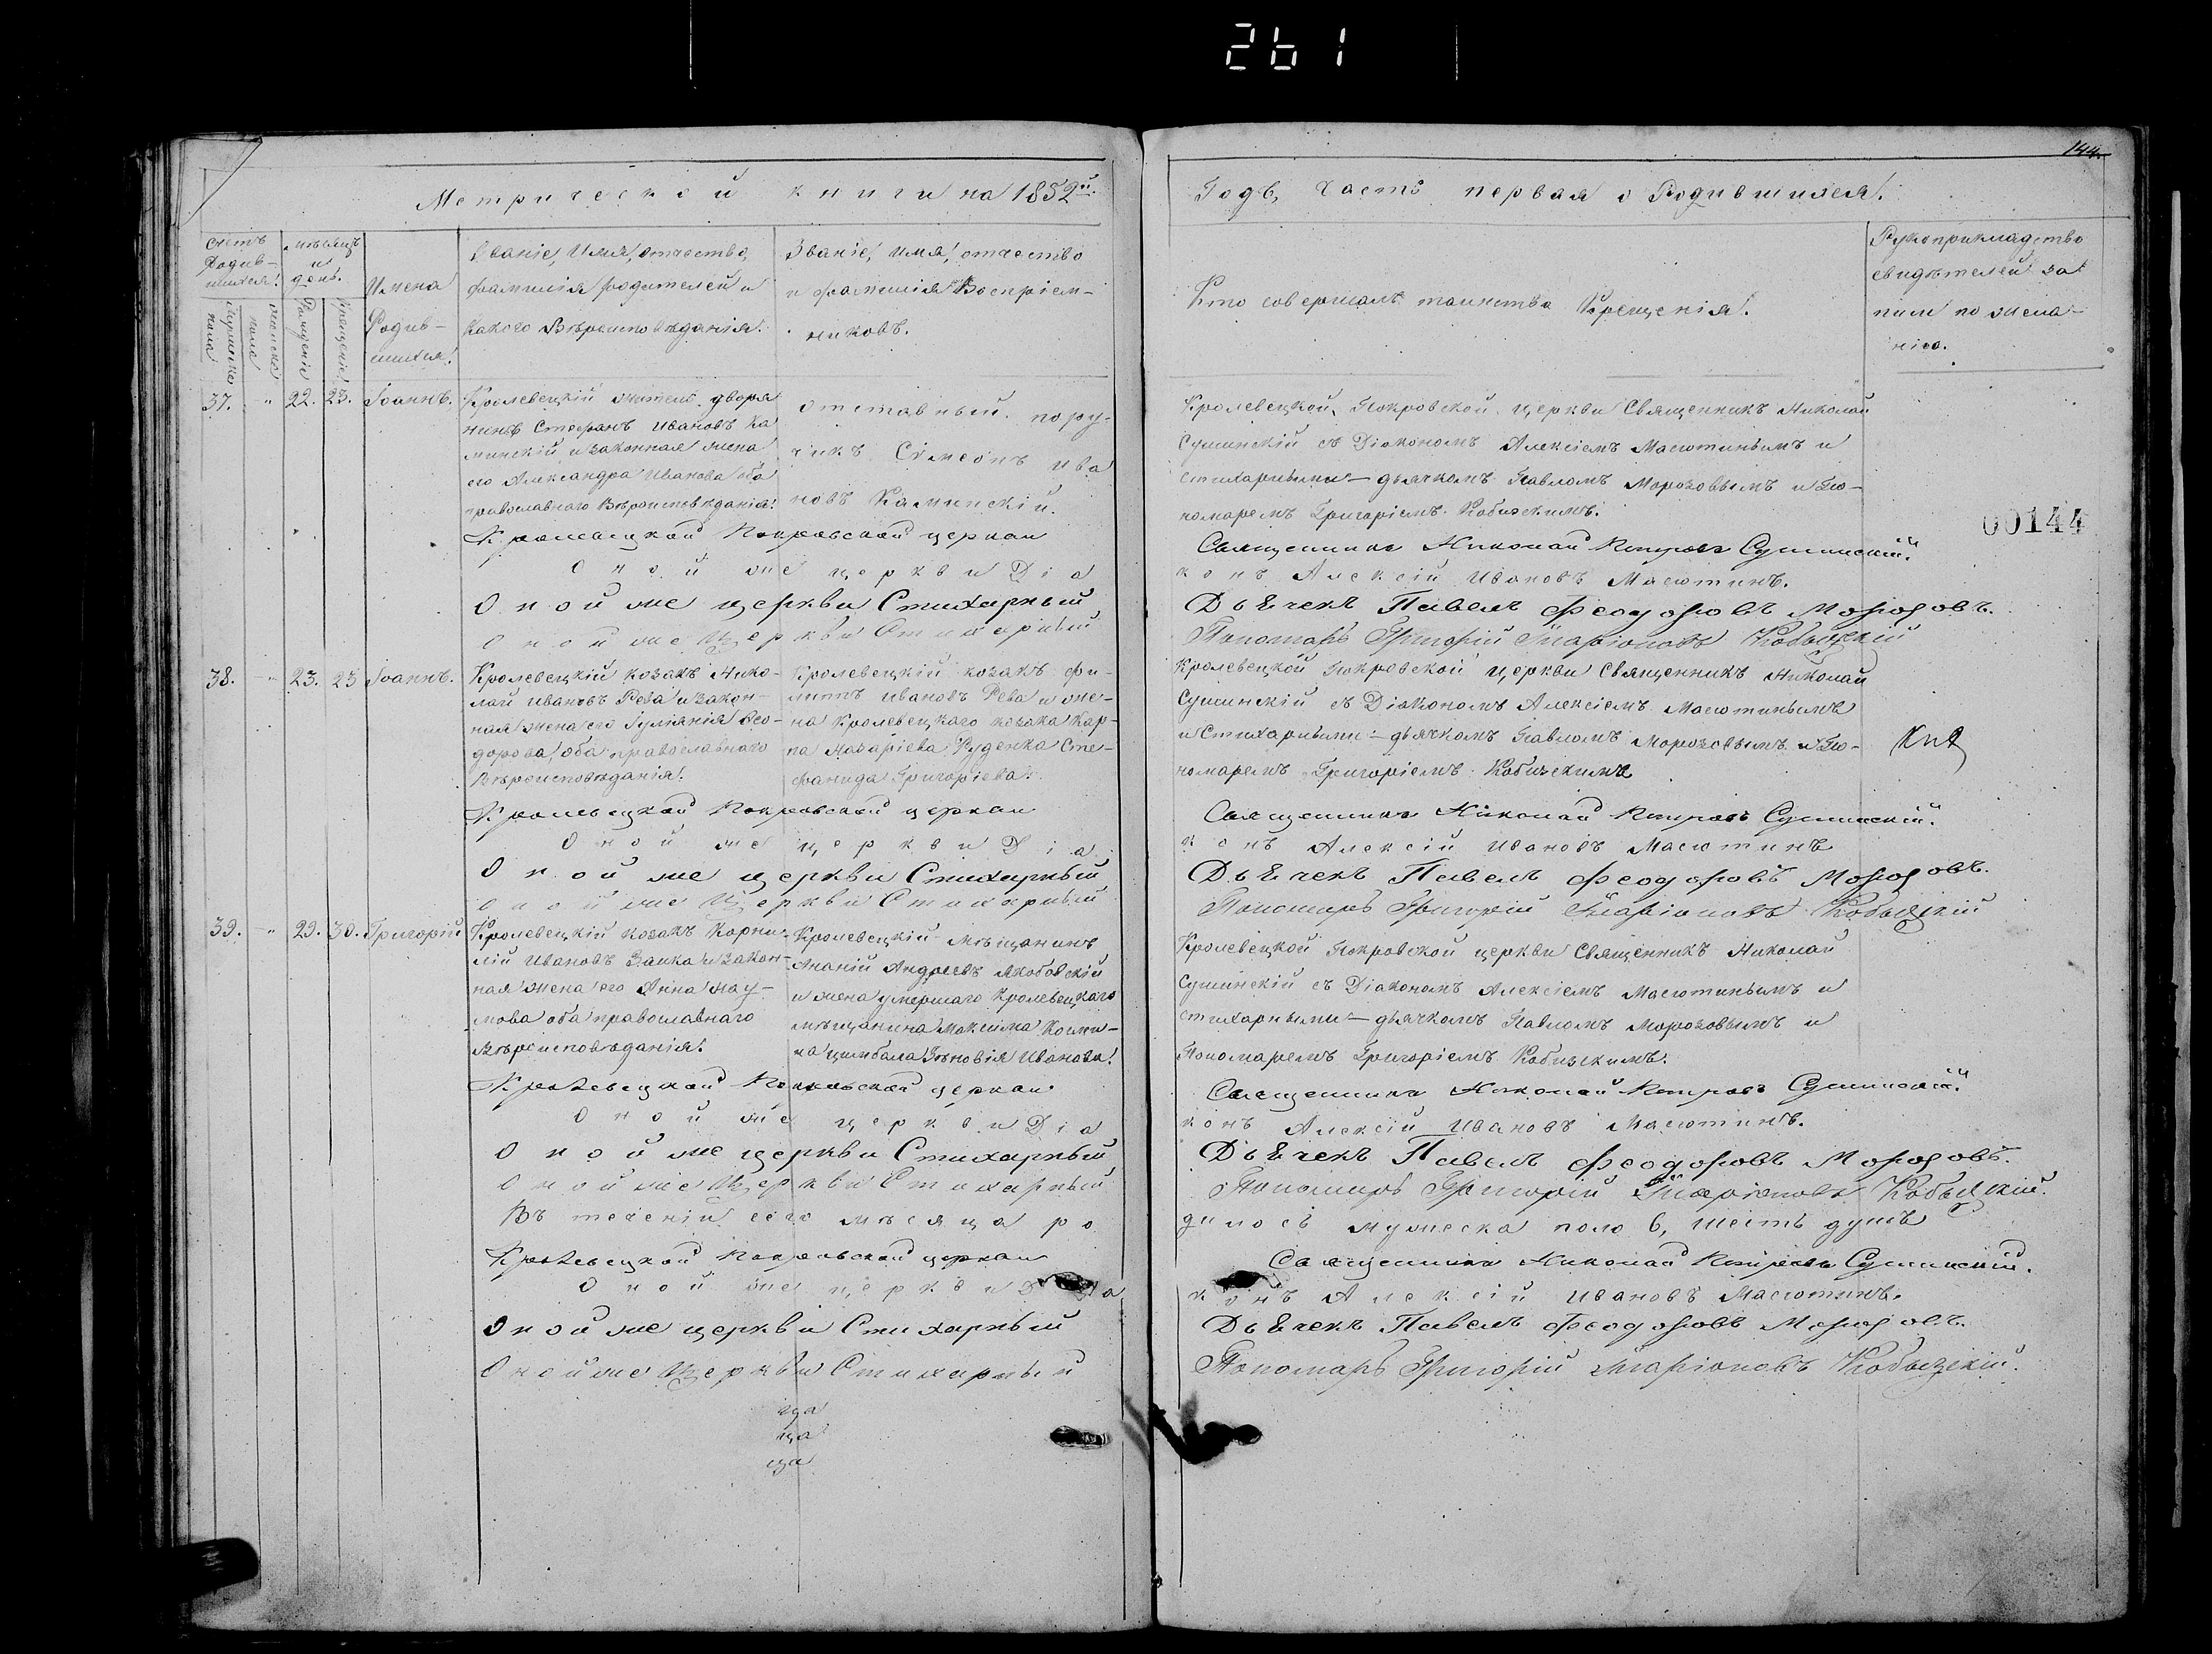 261
144.
Метрической книги на 1852й.
Годъ, часть первая о Родившихся.
Счетъ Родив-шихся.
Мужеска пола
женска пола
мѣсяцъ и день.
Рожденія
Крещенія
Имена Родив-шихся.
Званіе, Имя, отчество,
фамилія родителей и
какого Вѣроисповѣданія.
Званіе, имя, отчество
и фамилія Воспріем-
никовъ.
Кто совершалъ таинство Крещенія.
Рукоприкладство
свидѣтелей за
писи по жела-
нію.
37. " 22. 23. Іоаннъ.
Кролевецкій житель дворя
нинъ Стефанъ Ивановъ Ка
минскій и законная жена
его Александра Иванова оба
православнаго Вѣроисповѣданія.
Отставный пору-
чикъ Сімеонъ Ива
новъ Каминскій.
Кролевецкой Покровской церкви Священникъ Николай
Сушинскій съ Діакономъ Алексіемъ Масютинымъ и
стихарными – дьячкомъ Павломъ Морозовымъ и По-
номаремъ Григоріемъ Кобизскимъ.
00144
Кролевецкой Покровской церкви Священникъ Николай Петровъ Сушинскій.
Оной же церкви Діаконъ Алексій Ивановъ Масютинъ.
Оной же церкви Стихарный Дьячекъ Павелъ Феодоровъ Морозовъ.
Оной же Церкви Стихарный Пономарь Григорій Иларіоновъ Кобызскій
38. " 23. 23 Іоаннъ.
Кролевецкій козакъ Нико-
лай Ивановъ Рева и закон-
ная жена его Гуліянія Ѳео-
дорова, оба православнаго
Вѣроисповѣданія.
Кролевецкій козакъ Фи-
липпъ Ивановъ Рева и же-
на Кролевецкаго козака Кар-
па Назаріева Руденка Сте-
фанида Григоріева.
Кролевецкой Покровской церкви Священникъ Николай
Сушинскій съ Діакономъ Алексіемъ Масютинымъ
и Стихарными – дьячкомъ Павломъ Морозовымъ и По-
номаремъ Григоріемъ Кобизскимъ
Кролевецкой Покровской церкви Священникъ Николай Петровъ Сушинскій.
Оной же церкви Діаконъ Алексій Ивановъ Масютинъ
Оной же церкви Стихарный Дьячекъ Павелъ Феодоровъ Морозовъ.
Оной же Церкви Стихарный Пономарь Григорій Иларіоновъ Кобызскій
39. " 29. 30. Григорій
Кролевецкій козакъ Корни-
лій Ивановъ Заика и закон-
ная жена его Анна Нау-
мова оба православнаго
Вѣроисповѣданія.
Кролевецкій мѣщанинъ
Ананій Андреевъ Якобовскій
и жена умершаго Кролевецкаго
мѣщанина Максима
Цимбала Зѣновія Иванова.
Кролевецкой Покровской церкви Священникъ Николай
Сушинскій съ Діакономъ Алексіемъ Масютинымъ и
стихарными – дьячкомъ Павломъ Морозовымъ и
Пономаремъ Григоріемъ Кобизскимъ.
Кролевецкой Покровской церкви Священникъ Николай Петровъ Сушинскій.
Оной же церкви Діаконъ Алексій Ивановъ Масютинъ.
Оной же церкви Стихарный Дьячекъ Павелъ Феодоровъ Морозовъ.
Оной же Церкви Стихарный Пономарь Григорій Иларіоновъ Кобызскій.
Въ теченіи сего мѣсяца родилось мужеска поло 6, шесть душъ
Кролевецкой Покровской церкви Священникъ Николай Петровъ Сушинскій.
Оной же церкви Діаконъ Алексій Ивановъ Масютинъ.
Оной же церкви Стихарный Дьячекъ Павелъ Феодоровъ Морозовъ.
Оной же Церкви Стихарный Пономарь Григорій Иларіоновъ Кобызскій.
ца
ца
ца